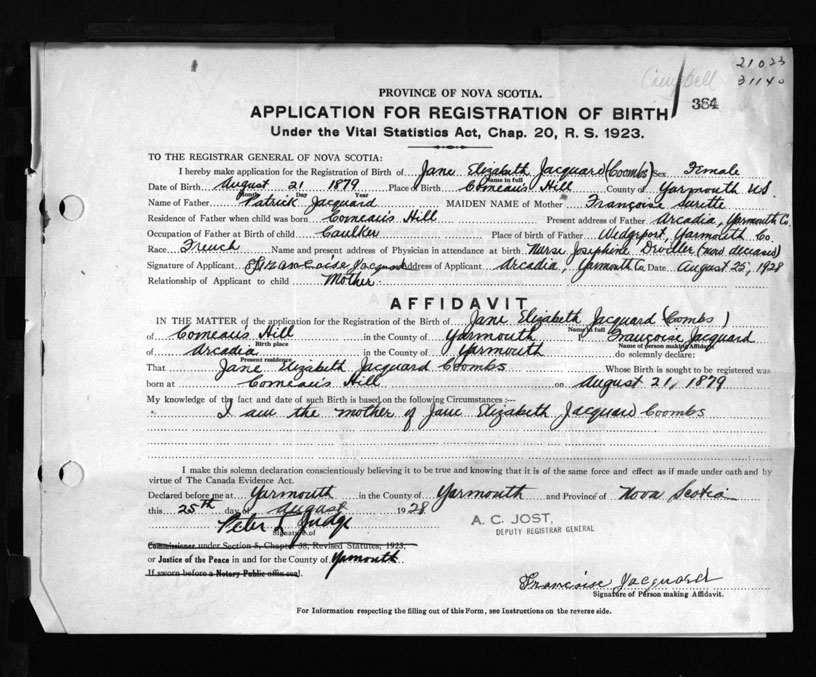 21023
31140
Campbell
384
PROVINCE OF NOVA SCOTIA.
APPLICATION FOR REGISTRATION OF BIRTH
Under the Vital Statistics Act, Chap. 20, R. S. 1923.
TO THE REGISTRAR GENERAL OF NOVA SCOTIA:
I hereby make application for the Registration of Birth of Jane Elizabeth Jacquard (Coombs) Sex Female
Name in full
Date of Birth August 21 1879 Place of Birth Comeau's Hill County of Yarmouth N.S.
Month Day Year
Name of Father Patrick Jacquard MAIDEN NAME of Mother Françoise Surette
Residence of Father when child was born Comeau's Hill Present address of Father Arcadia, Yarmouth Co.
Occupation of Father at Birth of child Caulker Place of birth of Father Wedgeport, Yarmouth Co.
Race French Name and present address of Physician in attendance at birth Nurse Josephine (now deceased)
Signature of Applicant Francoise Jacquard Address of Applicant Arcadia, Yarmouth Co. Date August 25, 1928
Relationship of Applicant to child Mother.
AFFIDAVIT
IN THE MATTER of the application for the Registration of the Birth of Jane Elizabeth Jacquard (Combs)
Name in full
of Comeau's Hill in the County of Yarmouth Françoise Jacquard
Birth place Name of person making Affidavit
of Arcadia in the County of Yarmouth do solemnly declare:
Present residence
That Jane Elizabeth Jacquard Coombs Whose Birth is sought to be registered was
born at Comeau's Hill on August 21, 1879
My knowledge of the fact and date of such Birth is based on the following Circumstances :--
I am the mother of Jane Elizabeth Jacquard Coombs
I make this solemn declaration conscientiously believing it to be true and knowing that it is of the same force and effect as if made under oath and by
virtue of The Canada Evidence Act.
Declared before me at Yarmouth in the County of Yarmouth and Province of Nova Scotia
this 25th day of August 1928
Peter L Judge
A. C. JOST,
DEPUTY REGISTRAR GENERAL
Signature of
Commissioner under Section 5, Chapter 38, Revised Statutes, 1923,
or Justice of the Peace in and for the County of Yarmouth
If sworn before a Notary Public affix seal.
Francoise Jacquard
Signature of Person making Affidavit.
For Information respecting the filling out of this Form, see Instructions on the reverse side.